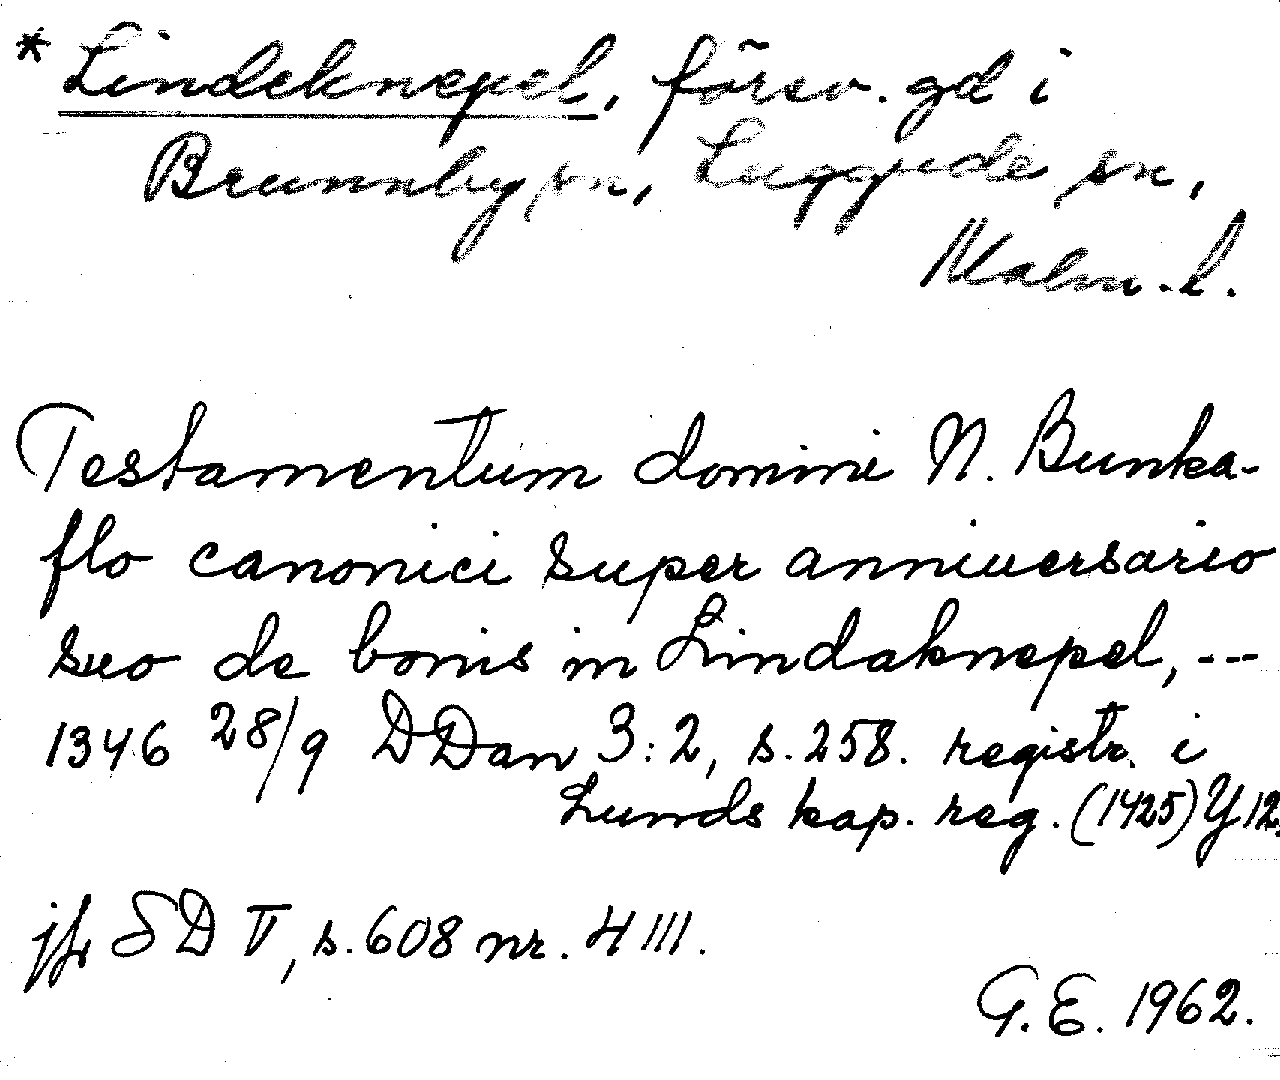 * Lindeknepel, försv. gd i
Brunnby sn, Luggude sn,
Malm. l.
Testamentum domini N. Bunka-
flo canonici super anniuersario
suo de bonis in Lindaknepel, ---
1346 28/9 DDan 3:2, s. 258. registr. i
Lunds kap. reg. (1425) Y 12.
jfr SD V, s. 608 nr. 4111.
G. E. 1962.